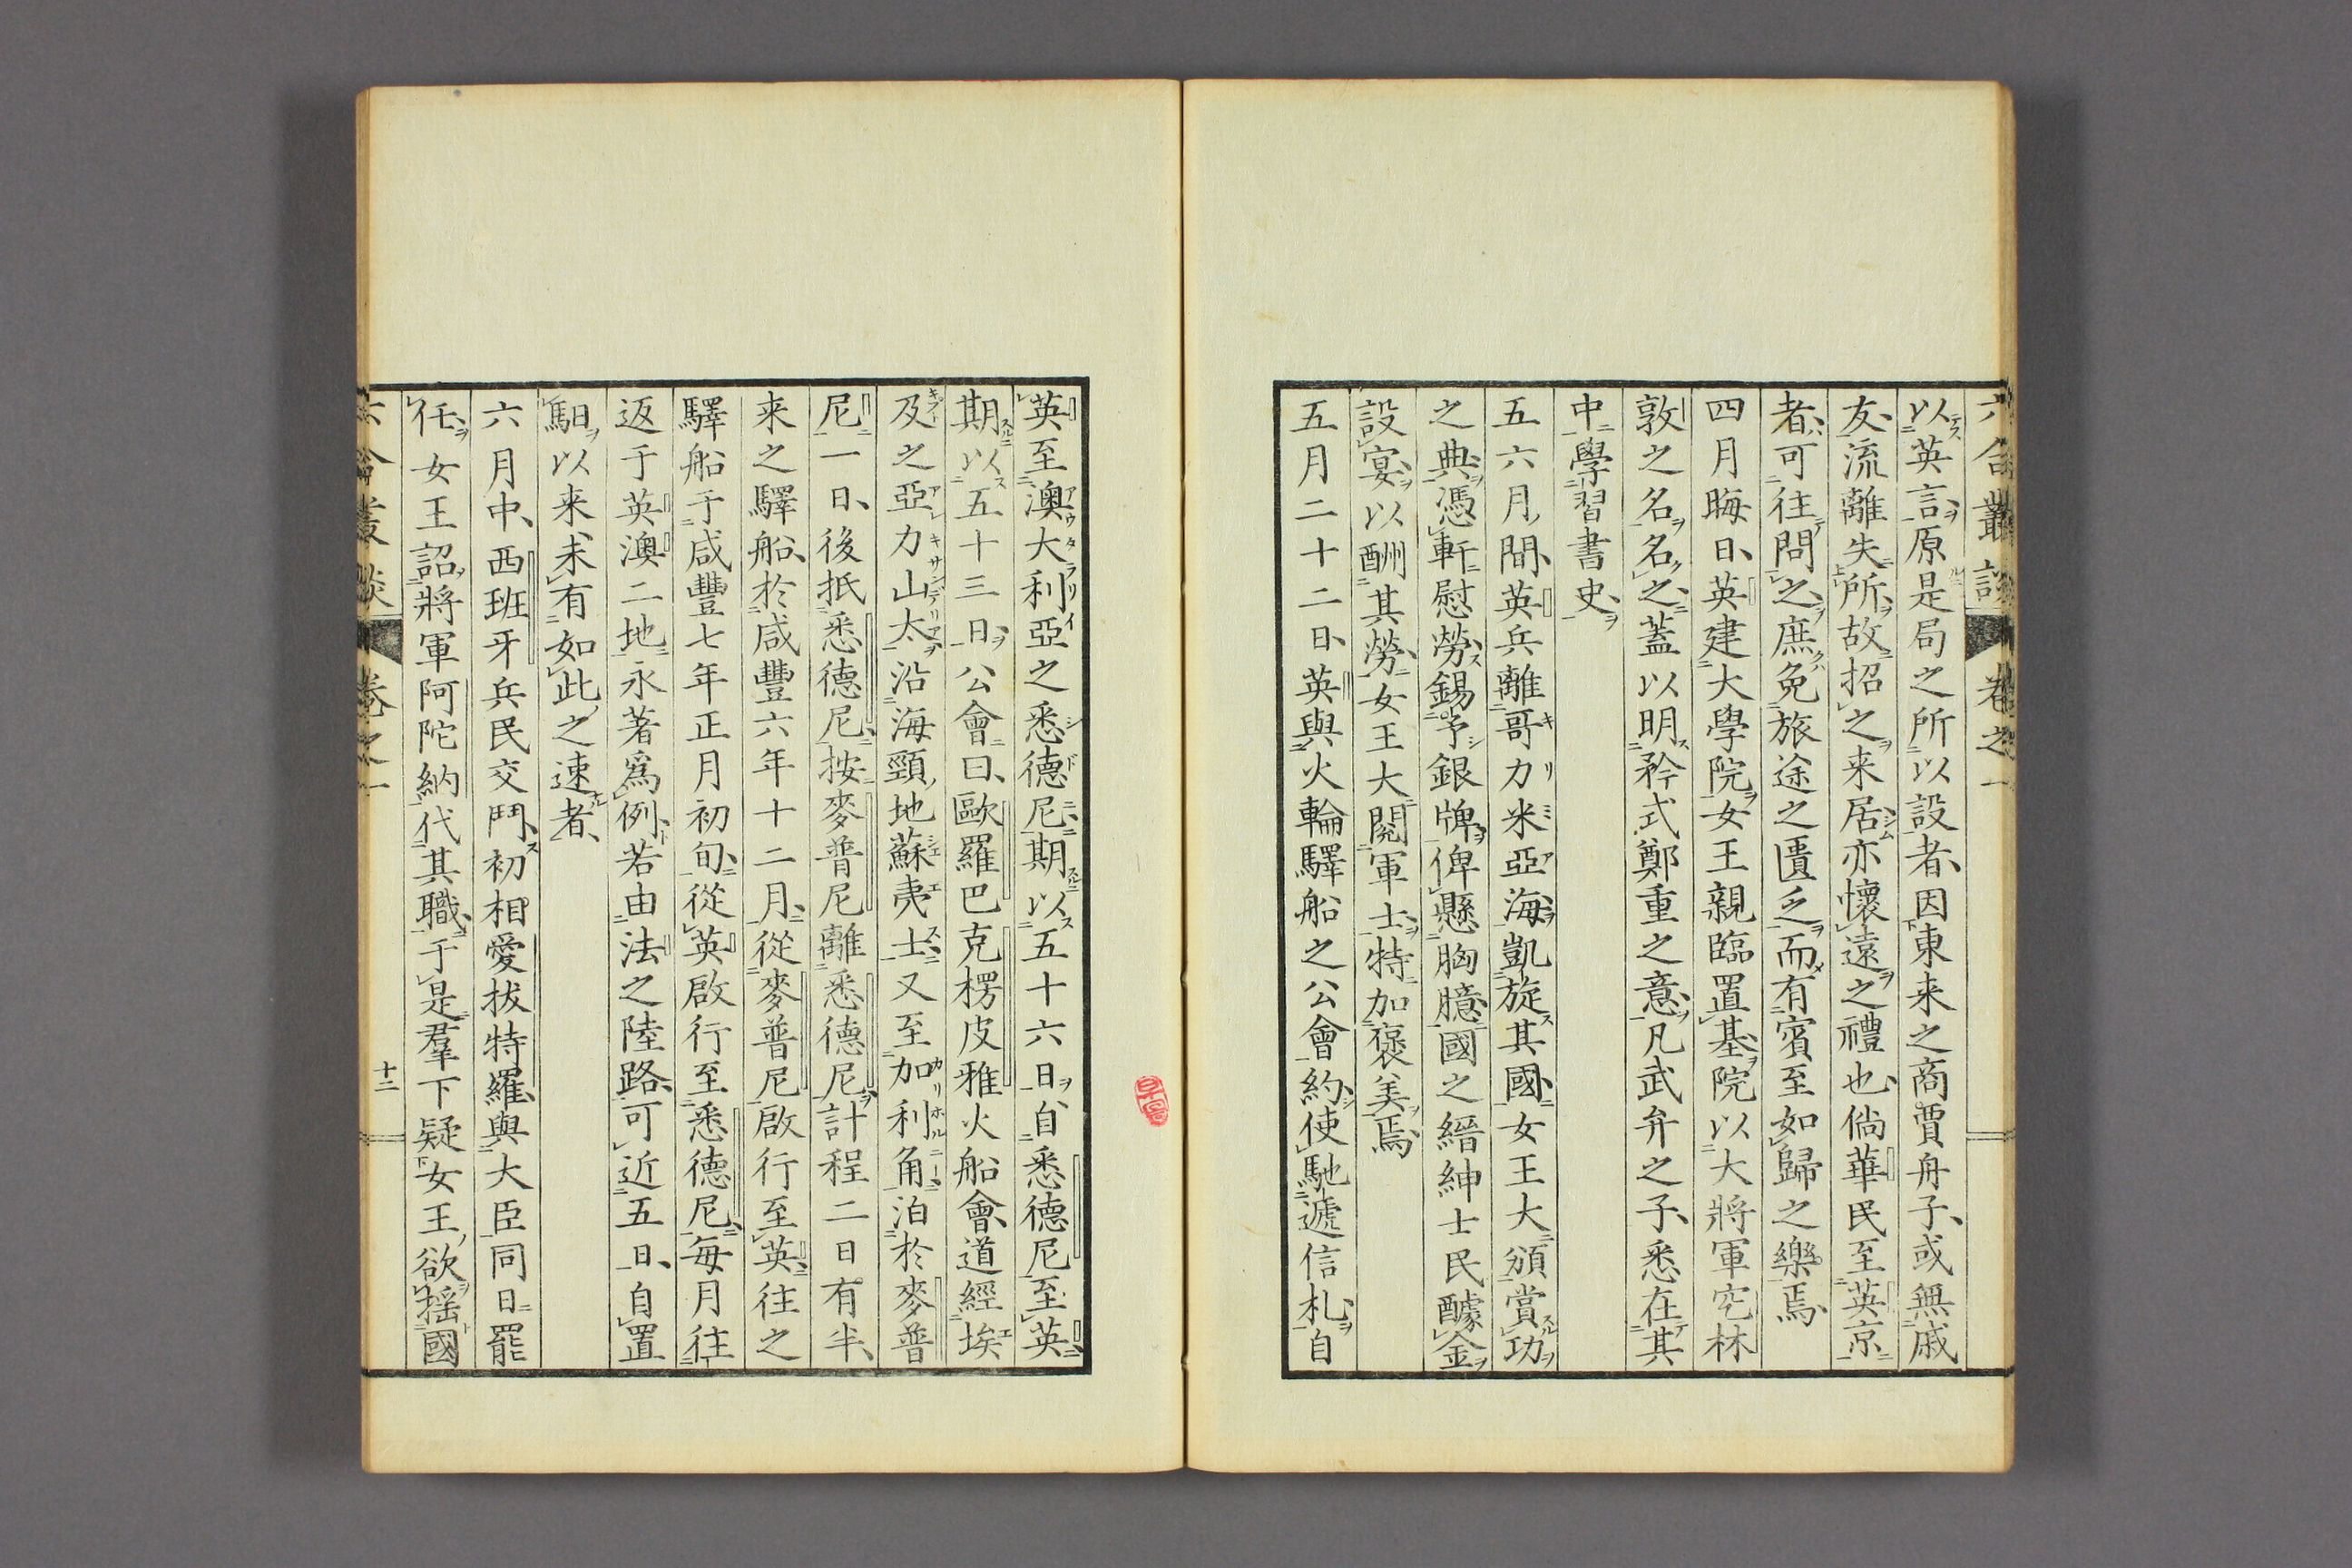 六合叢談 卷之一
以英言原是局之所以設者因東来之商賈舟子或無戚
友流離失所故招之来居亦懷遠之禮也倘華民至英京
者可往問之庶免旅途之匱乏而有賓至如歸之樂焉
四月晦日英建大學院女王親臨置基院以大將軍空林
敦之名名之蓋以明矜式鄭重之意凡武弁之子悉在其
中學習書史
五六月間英兵離哥力米亞海凱旋其國女王大頒賞功
之典憑軒慰勞錫予銀牌俾懸胸臆國之縉紳士民醵金
設宴以酬其勞女王大閱軍士特加褒美焉
五月二十二日英與火輪驛船之公會約使馳遞信札自
英至澳大利亞之悉德尼期以五十六日自悉德尼至英
期以五十三日公會曰歐羅巴克楞皮雅火船會道經埃
及之亞力山太沿海頸地蘇夷士又至加利角泊於麥普
尼一日後抵悉德尼按麥普尼離悉德尼計程二日有半
来之驛船於咸豐六年十二月從麥普尼啟行至英往之
驛船于咸豐七年正月初旬從英啟行至悉德尼每月往
返于英澳二地永著爲例若由法之陸路可近五日自置
馹以来未有如此之速者
六月中西班牙兵民交鬥初相愛拔特羅與大臣同日罷
任女王詔將軍阿陀納代其職于是羣下疑女王欲摇國
六合叢談 卷之一 十二